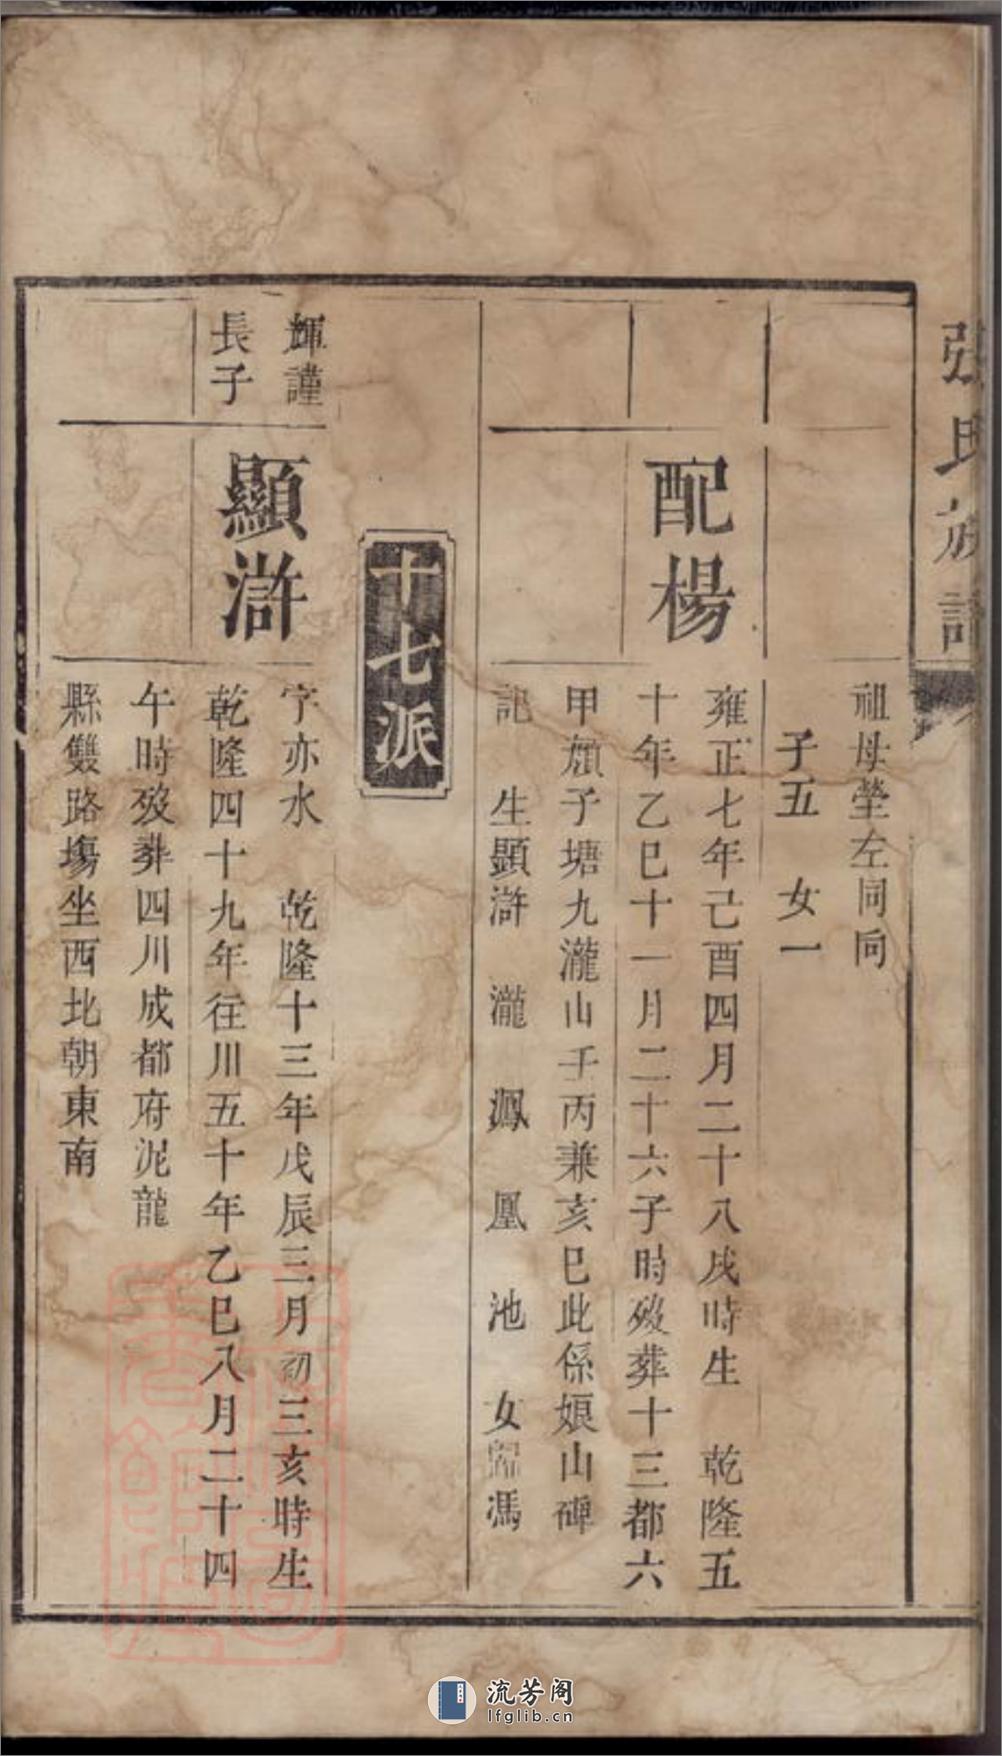 張氏族譜
祖母塋左同向
子五　女一
配楊
雍正七年己酉四月二十八戌時生　乾隆五
十年乙巳十一月二十六子時歿葬十三都六
甲㿽子塘九瀧山壬丙兼亥巳此係娘山碑
記　生顯滸　瀧　鳳　凰　池　女歸馮
十七派
輝謹
長子
顯滸
字亦水　乾隆十三年戊辰三月初三亥時生
乾隆四十九年往川五十年乙巳八月二十四
午時歿葬四川成都府泥龍
縣雙路塲坐西北朝東南
流芳阁
lfglib.cn